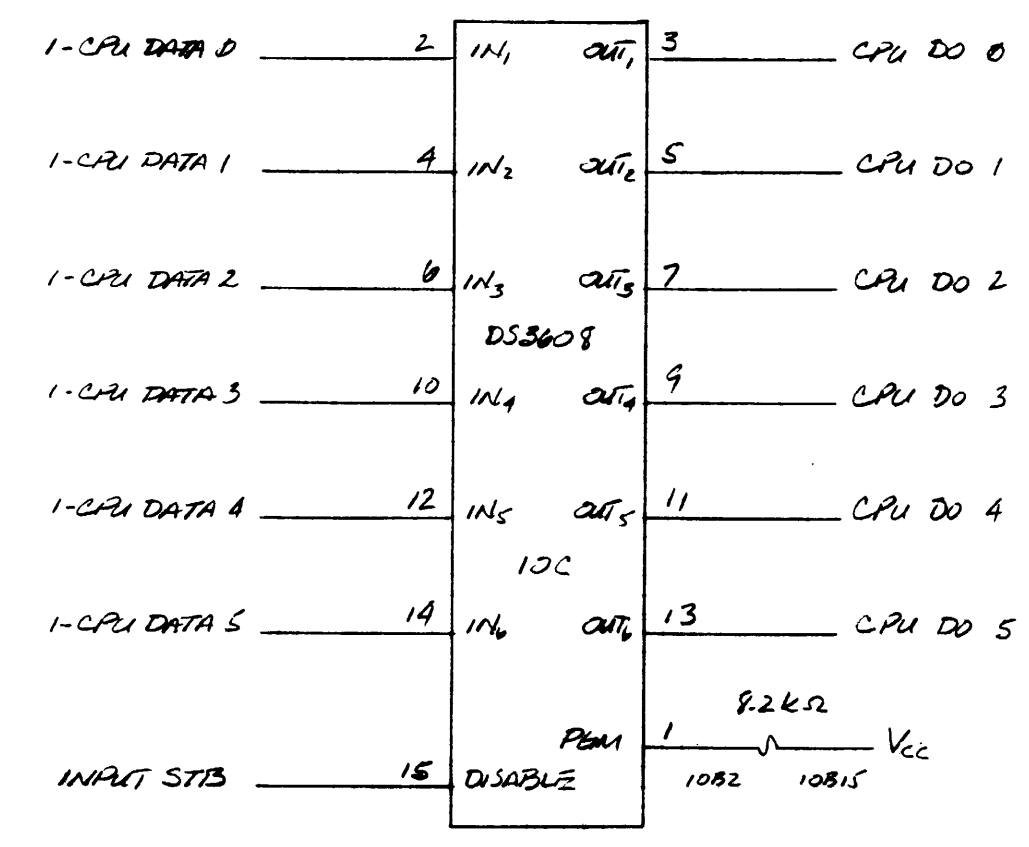 1-CPU DATA 0 2 IN1 OUT1 3 CPU DO 0
1-CPU DATA 1 4 IN2 OUT2 5 CPU DO 1
1-CPU DATA 2 6 IN3 OUT3 7 CPU DO 2
DS3608
1-CPU DATA 3 10 IN4 OUT4 9 CPU DO 3
1-CPU DATA 4 12 IN5 OUT5 11 CPU DO 4
10C
1-CPU DATA 5 14 IN6 OUT6 13 CPU DO 5
8.2kΩ
PGM 1 Vcc
INPUT STB 15 DISABLE 10B2 10B15